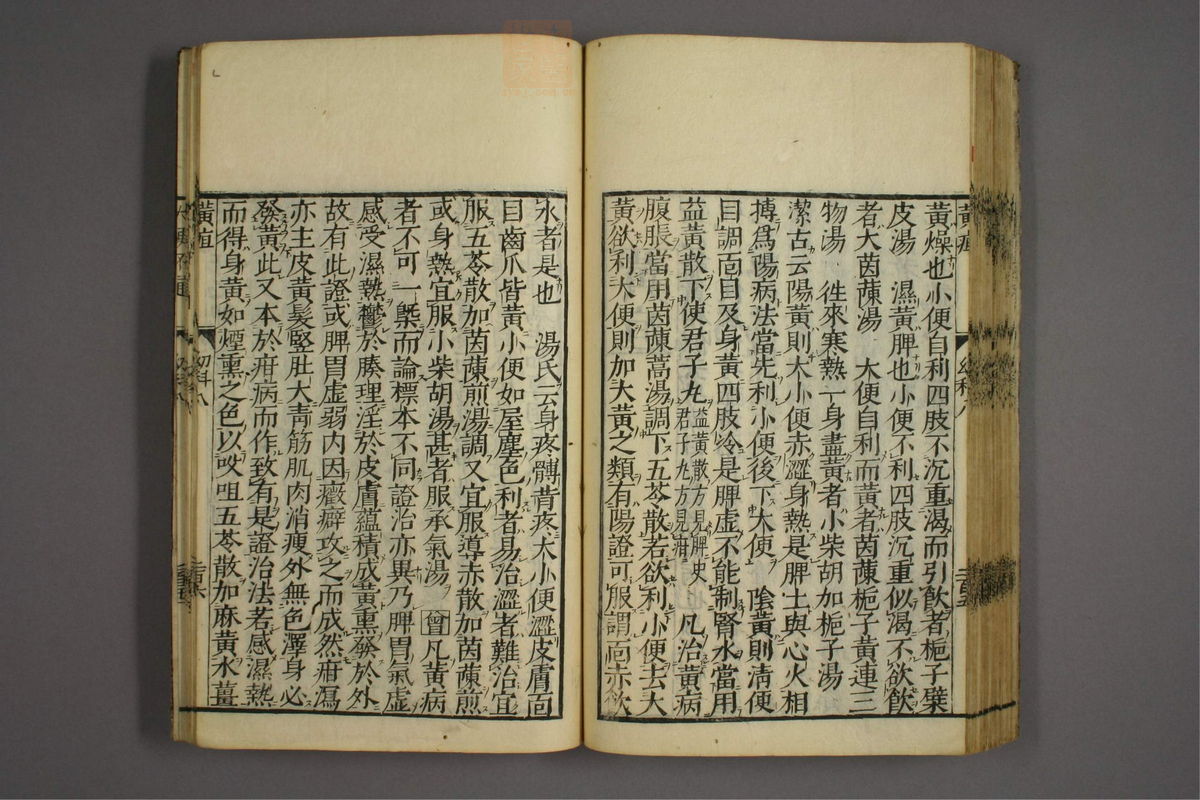 黃燥也小便自利四肢不沉重渴而引飲者梔子蘗
皮湯　濕黃脾也小便不利四肢沉重似渴不欲飲
者大茵蔯湯　大便自利而黃者茵蔯梔子黃連三
物湯　徃來寒熱一身盡黃者小柴胡加梔子湯
潔古云陽黃則大小便赤澀身熱是脾土與心火相
搏爲陽病法當先利小便後下大便　陰黃則清便
目調面目及身黃四肢冷是脾虛不能制腎水當用
益黃散下使君子丸益黃散方見脾史君子丸方見疳　凡治黃病
腹脹當用茵蔯蒿湯調下五苓散若欲利小便去大
黃欲利大便則加大黃之類有陽證可服謂面赤飲
水者是也　湯氏云身疼髆背疼大小便澀皮膚面
目齒爪皆黃小便如屋塵色利者易治澀者難治宜
服五苓散加茵蔯煎湯調又宜服導赤散加茵蔯煎
或身熱宜服小柴胡湯甚者服承氣湯　曾凡黃病
者不可一槩而論標本不同證治亦異乃脾胃氣虛
感受濕熱鬱於腠理淫於皮膚蘊積成黃熏發於外
故有此證或脾胃虛弱內因癥癖攻之而成然疳瀉
亦主皮黃髮竪肚大青筋肌肉消瘦外無色澤身必
發黃此又本於疳病而作致有是證治法若感濕熱
而得身黃如煙熏之色以㕮咀五苓散加麻黃水薑
黃疸
幼科八